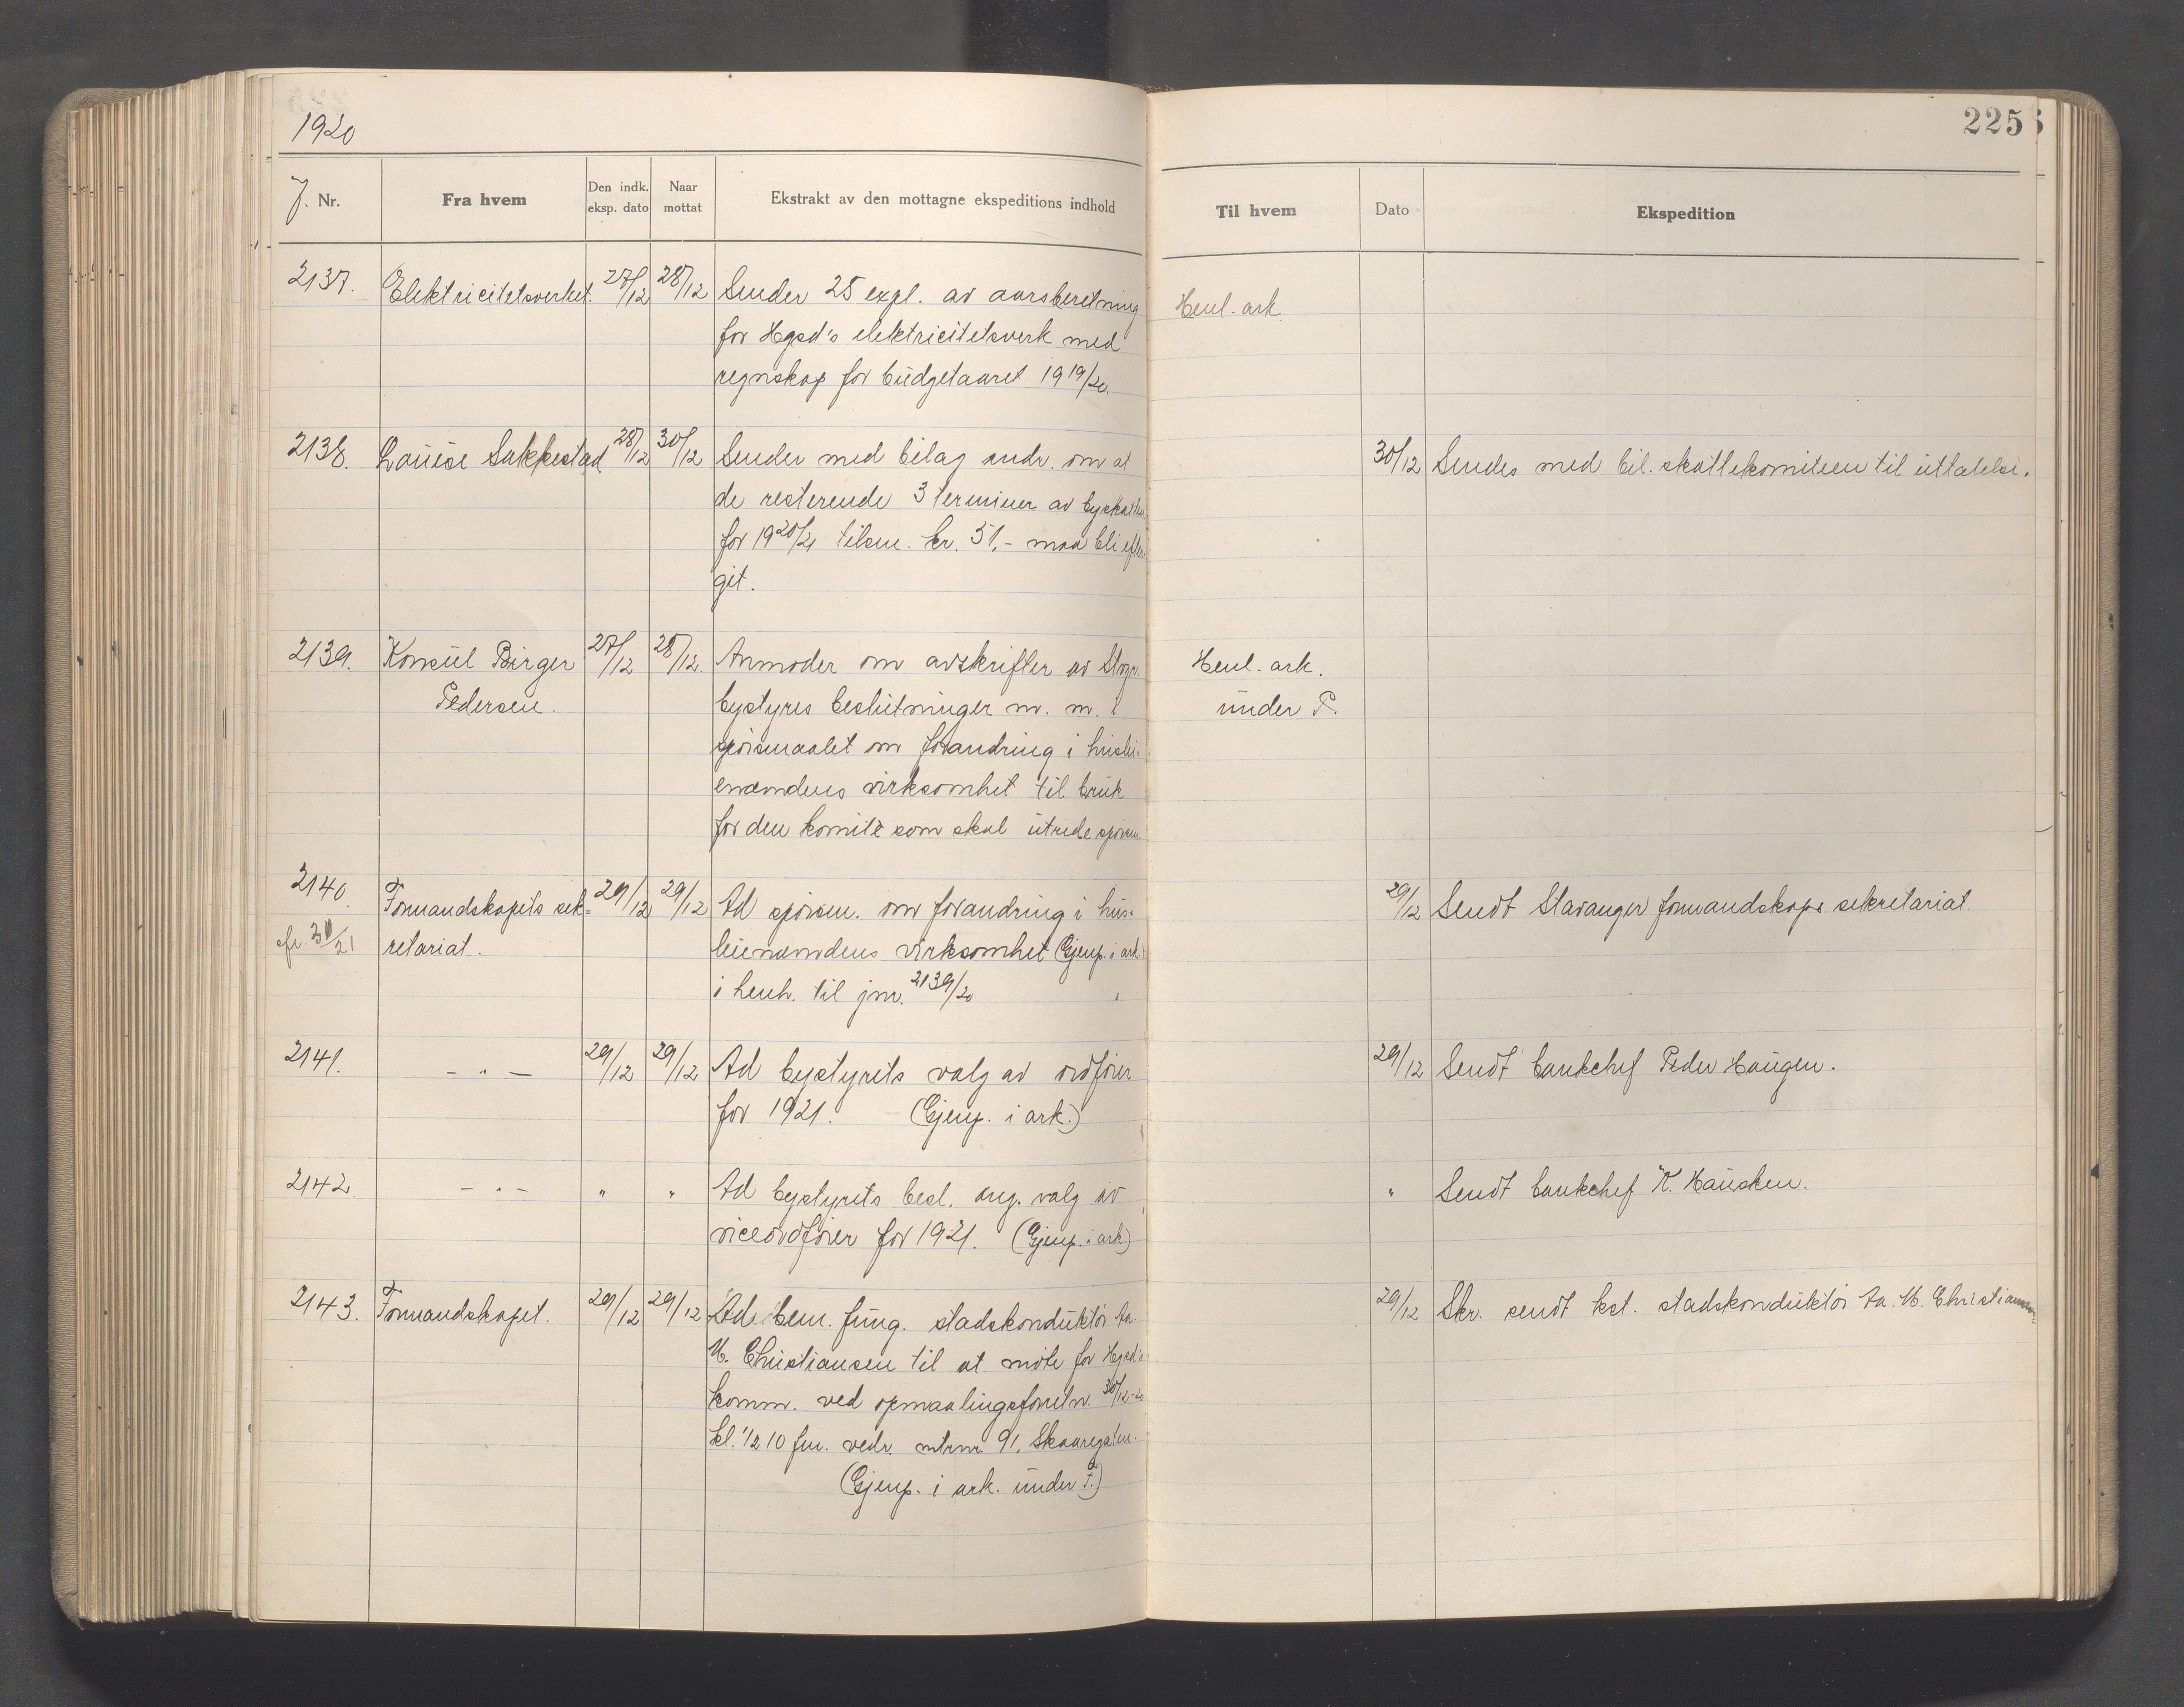 1920
225
J. Nr.
Fra hvem
Den indk. eksp. dato
Naar mottat
Ekstrakt av den mottagne ekspeditions indhold
Til hvem
Dato
Ekspedition
2137. Elektricitetsverket. 27/12 28/12 Sender 25 expl. av aarsberetning
for Hgsd's elektricitetsverk med
regnskap for budgetaaret 1919/20.
Henl. ark.
2138. Louise Sakkestad 28/12 30/12 Sender med bilag andr. om at
de resterende 3 terminer av byskatten
for 1920/21 tilsm. kr. 51,- maa bli efter-
git.
30/12 Sendes med bil. skattekomiteen til uttalelse.
2139. Konsul Birger 27/12 28/12. Anmoder om avskrifter av
Pedersen.
bystyres beslutninger m. m. i
spörsmaalet om forandring i huslei-
enævndens virksomhet til bruk
for den komité som skal utrede spörsm.
Henl. ark.
under P.
2140. Formandskapets sek- 29/12 29/12 Ad spörsm. om forandring i hus-
retariat.
leienævndens virksomhet (Gjenp. i ark.)
i henh. til jnr. 2139/20
29/12 Sendt Stavanger formandskaps sekretariat
2141. - " - 29/12 29/12 Ad bystyrets valg av ordförer
for 1921. (Gjenp. i ark.)
29/12 Sendt bankchef Peder Haugen.
2142. - " - " " Ad bystyrets besl. ang. valg av
viceordförer for 1921. (Gjenp. i ark.)
" Sendt bankchef K. Hausken.
2143. Formandskapet. 29/12 29/12 Ad bem. fung. stadskonduktör
M. Christiansen til at möte for Hgsd's
komm. ved opmaalingsforretn. 30/12-20
kl. 1/2 10 fm. vedr. mtrnr 91, Skaaregaten.
(Gjenp. i ark. under F.)
29/12 Skr. sendt kst. stadskonduktör M. Christiansen.